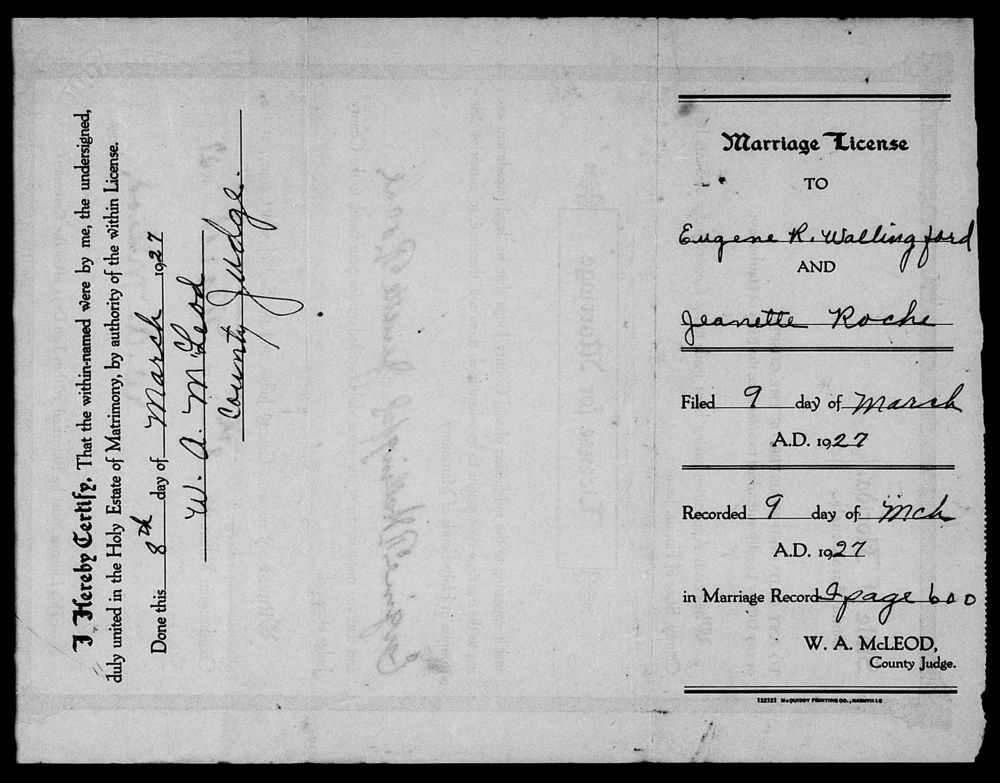 I Hereby Certify, That the within-named were by me, the undersigned,
duly united in the Holy Estate of Matrimony, by authority of the within License.
Done this 8th day of March 1927
W. A. McLeod
County Judge.
Marriage License
TO
Eugene R. Wallingford
AND
Jeanette Roche
Filed 9 day of March
A.D. 1927
Recorded 9 day of Mch
A.D. 1927
in Marriage Record I page 600
W. A. McLEOD,
County Judge.
122121 McQUIDDY PRINTING CO., NASHVILLE